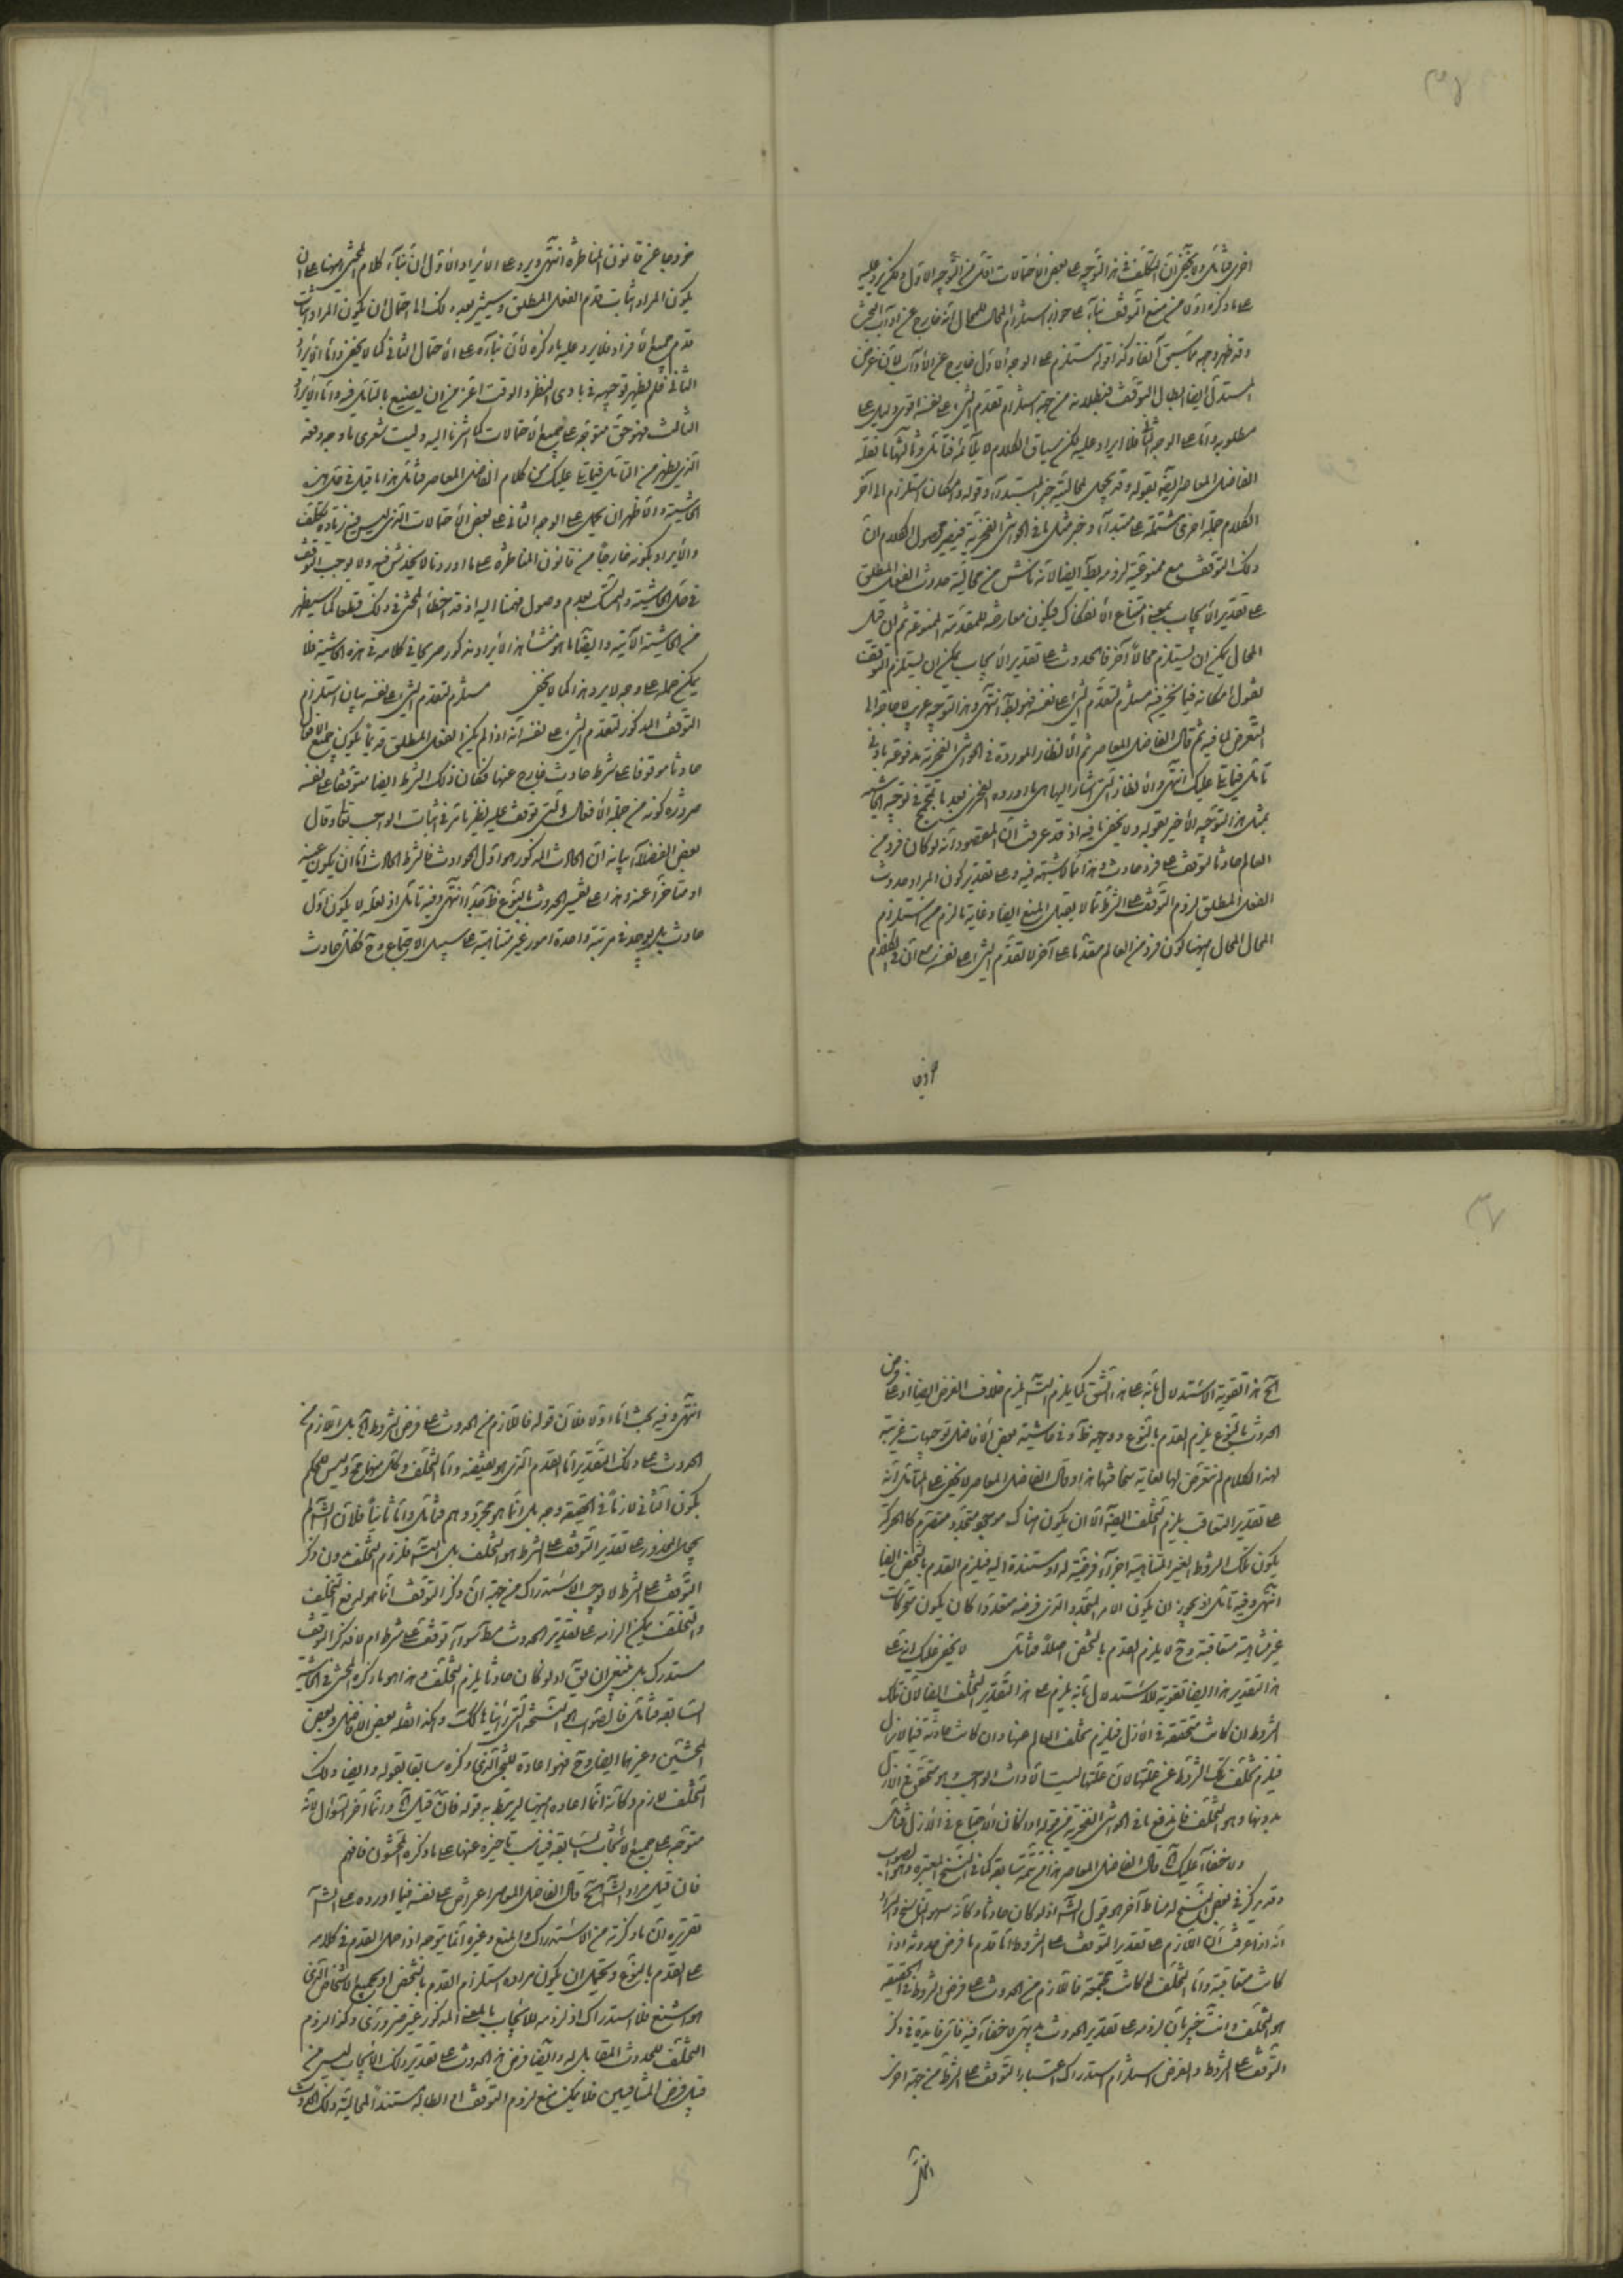 اخرى فتأمل ولا يخفى ان التكلف فى هذا التوجيه على بعض الاحتمالات اقل من التوجيه الاول ولكن يرد عليه
على ما ذكره اولا من منع التوقف بناء على جواز استلزام المحال للمحال انه خارج عن اداب البحث
وقد ظهر وجهه مما سبق آنفا وكذا قوله مستلزم على الوجه الاول خارج عن الآداب لان غرض
المستدل ايضا ابطال التوقف فبطلانه من جهة استلزام تقدم الشئ على نفسه اقوى دليل على
مطلوبه واما على الوجه الثانى فلا ايراد عليه لكن سياق الكلام لا يلائمه فتأمل وثالثها ما نقله
الفاضل المعاصر ايضا بقوله وقد يجعل محالية خبر المبتدأ وقوله وامكان استلزام الى آخر
الكلام جملة اخرى مشتملة على مبتدأ وخبر مثل ما فى الحواشى الفخرية فيصير محصول الكلام ان
ذلك التوقف مع ممنوعية لزومه بط ايضا لانه ناش من محالية حدوث الفعل المطلق
على تقدير الايجاب بمعنى امتناع الانفكاك فيكون معارضة للمقدمة الممنوعة ثم ان قيل
المحال يمكن ان يستلزم محالا آخر فالحدوث على تقدير الايجاب يمكن ان يستلزم التوقف
نقول امكانه فيما نحن فيه مستلزم لتقدم الشئ على نفسه فهو بط انتهى وهذا التوجيه غريب لا حاجة الى
التعرض لما فيه ثم قال الفاضل المعاصر ثم الانظار الموردة فى الحواشى الفخرية مدفوعة بادنى
تأمل فيما يتلى عليك انتهى والانظار التى اشار اليها هى ما اورده الفخرى بعد ما تبجح فى توجيه الحاشية
بمثل هذا التوجيه الاخير بقوله ولا يخفى ما فيه اذ قد عرفت ان المقصود انه لو كان فرد من
العالم حادثا لتوقف على فرد حادث وهذا مما لا شبهة فيه وعلى تقدير كون المراد حدوث
الفعل المطلق لزوم التوقف على الشرط مما لا يقبل المنع ايضا وغاية ما لزم من استلزام
المحال المحال ههنا كون فرد من العالم مقدما على آخر لا تقدم الشئ على نفسه مع ان فى الكلام
خروجا عن قانون المناظرة انتهى ويرد على الايراد الاول ان بناء كلام المحشى ههنا على ان
يكون المراد اثبات قدم الفعل المطلق وسيشير بعد ذلك الى احتمال ان يكون المراد اثبات
قدم جميع الافراد فلا يرد عليه ما ذكره لان بناءه على الاحتمال الثانى كما لا يخفى واما الايراد
الثانى فلم يظهر توجيهه فى بادى النظر والوقت اعز من ان يضيع بالتأمل فيه واما الايراد
الثالث فهو حق متوجه على جميع الاحتمالات كما اشرنا اليه وليت شعرى ما وجه دفعه
الذى يظهر من التأمل فيما يتلى عليك من كلام الفاضل المعاصر فتأمل هذا ما قيل فى حل هذه
الحاشية والاظهر ان يحمل على الوجه الثانى على بعض الاحتمالات الذى ليس فيه زيادة تكلف
والايراد بكونه خارجا من قانون المناظرة على ما اوردنا لا يخدش فيه ولا يوجب التوقف
فى حل الحاشية والتمسك بعدم وصول فهمنا اليه اذ قد اخطأ المحشى فى ذلك قطعا كما سيظهر
من الحاشية الآتية وايضا ما هو منشأ هذا الايراد مذكور صريحا فى كلامه فى هذه الحاشية فلا
يمكن حمله على وجه لا يرد هذا كما لا يخفى مستلزم لتقدم الشئ على نفسه بيان استلزام
التوقف المذكور لتقدم الشئ على نفسه انه اذا لم يكن الفعل المطلق قديما يكون جميع الافعال
حادثا موقوفا على شرط حادث خارج عنها فكان ذلك الشرط ايضا متوقفا على نفسه
ضرورة كونه من جملة الافعال التى توقف عليه نظير ما مر فى اثبات الواجب تعالى وقال
بعض الفضلاء بيانه ان الحادث المذكور هو اول الحوادث فالشرط الحادث اما ان يكون عينه
او متأخرا عنه وهذا على تفسير الحدوث بالنوع ظ جدا انتهى وفيه تأمل اذ لعله لا يكون اول
حادث بل يوجد فى مرتبة واحدة امور غير متناهية على سبيل الاجتماع وح فكل حادث
اخرى
الخ هذا تقوية الاستدلال بانه على هذا الشق كما يلزم التسلسل يلزم خلاف الفرض ايضا اذ على فرض
الحدوث بالنوع يلزم القدم بالنوع ووجهه ظ وفى حاشية بعض الافاضل توجيهات غريبة
لهذا الكلام لم نتعرض لها لغاية سخافتها هذا وقال الفاضل المعاصر لا يخفى على المتأمل انه
على تقدير التعاقب يلزم التخلف البتة الا ان يكون هناك موجود متجدد متصرم كالحركة
يكون تلك الشروط الغير المتناهية اجزاء فرضية له او مستندة اليه فيلزم القدم بالشخص ايضا
انتهى وفيه تأمل اذ يجوز ان يكون الامر المتجدد الذى فرضه متعددا كان يكون متحركات
غير متناهية متعاقبة وح لا يلزم القدم بالشخص اصلا فتأمل لا يخفى عليك انه على
هذا التقدير هذا ايضا تقوية للاستدلال بانه يلزم على هذا التقدير التخلف ايضا لان تلك
الشروط ان كانت متحققة فى الازل فيلزم تخلف العالم عنها وان كانت حادثة فيما لا يزال
فيلزم تخلف تلك الشروط عن علتها لان علتها ليست الا ذات الواجب وهو متحقق فى الازل
بدونها وهو التخلف فاندفع ما فى الحواشى الفخرية من قوله اذا كان الاجتماع فى الازل فتأمل
ولا خفاء عليك الخ قال الفاضل المعاصر هذا من تتمة سابقه كما فى النسخ المعتبرة وهو الصواب
وقد يركز فى بعض النسخ له مناط آخر هو قول الش اذ لو كان حادثا وكأنه سهو من الناسخ والمراد
انه اذا عرفت ان اللازم على تقدير التوقف على الشروط اما قدم ما فرض حدوثه اذا
كانت متعاقبة واما التخلف لو كانت مجتمعة فاللازم من الحدوث على فرض الشروط فى الحقيقة
هو التخلف وانت خبير بان لزومه على تقدير الحدوث بديهى لا خفاء فيه فاى فايدة فى ذكر
التوقف على الشروط والغرض استلزام استدراك اعتبار التوقف على الشرط من جهة اخرى
انتهى
انتهى وفيه بحث اما اولا فلان قوله فاللازم من الحدوث على فرض الشروط الخ بل اللازم من
الحدوث على ذلك التقدير اما القدم الذى هو نقيضه واما التخلف وكل منهما مح وليس للحكم
بكون الثانى لازما فى الحقيقة وجه بل انما هو مجرد وهم فتأمل واما ثانيا فلان الش لم
يجعل المحذور على تقدير التوقف على الشرط هو التخلف بل التس فلزوم التخلف بدون ذكر
التوقف على الشرط لا يوجب الاستدراك من جهة ان ذكر التوقف انما هو لدفع التخلف
والتخلف يمكن الزامه على تقدير الحدوث مط سواء توقف على شرط ام لا فذكر التوقف
مستدرك بل ينبغى ان يق اذ لو كان حادثا يلزم التخلف وهذا هو ما ذكره المحشى فى الحاشية
السابقة فتأمل فالصواب هو النسخة التى رأيناها كذلك وهكذا نقله بعض الافاضل وبعض
المحشين وغيرهما ايضا وح فهو اعادة للبحث الذى ذكره سابقا بقوله وايضا ذلك
التخلف لازم وكأنه انما اعاده ههنا ليرتبط به قوله فان قيل الخ وانما اخر السؤال لانه
متوجه على جميع الابحاث السابقة فيناسب تأخيره عنها على ما ذكره المحشون فافهم
فان قيل مراد الش الخ قال الفاضل المعاصر اعتراض على نفسه فيما اورده على الش
تقريره ان ما ذكرته من الاستدراك والمنع وغيره انما يتوجه اذا حمل القدم فى كلامه
على القدم بالنوع ويحتمل ان يكون مراده استلزام القدم بالشخص او بجميع الاشخاص الذى
هو اشنع فلا استدراك اذ لزومه للايجاب بالمعنى المذكور غير ضرورى وكذا لزوم
التخلف للحدوث المقابل له وايضا فرض الحدوث على تقدير ذلك الايجاب ليس من
قبيل فرض المتنافيين فلا يمكن منع لزوم التوقف او ابطاله مستندا لمحالية ذلك الحدوث